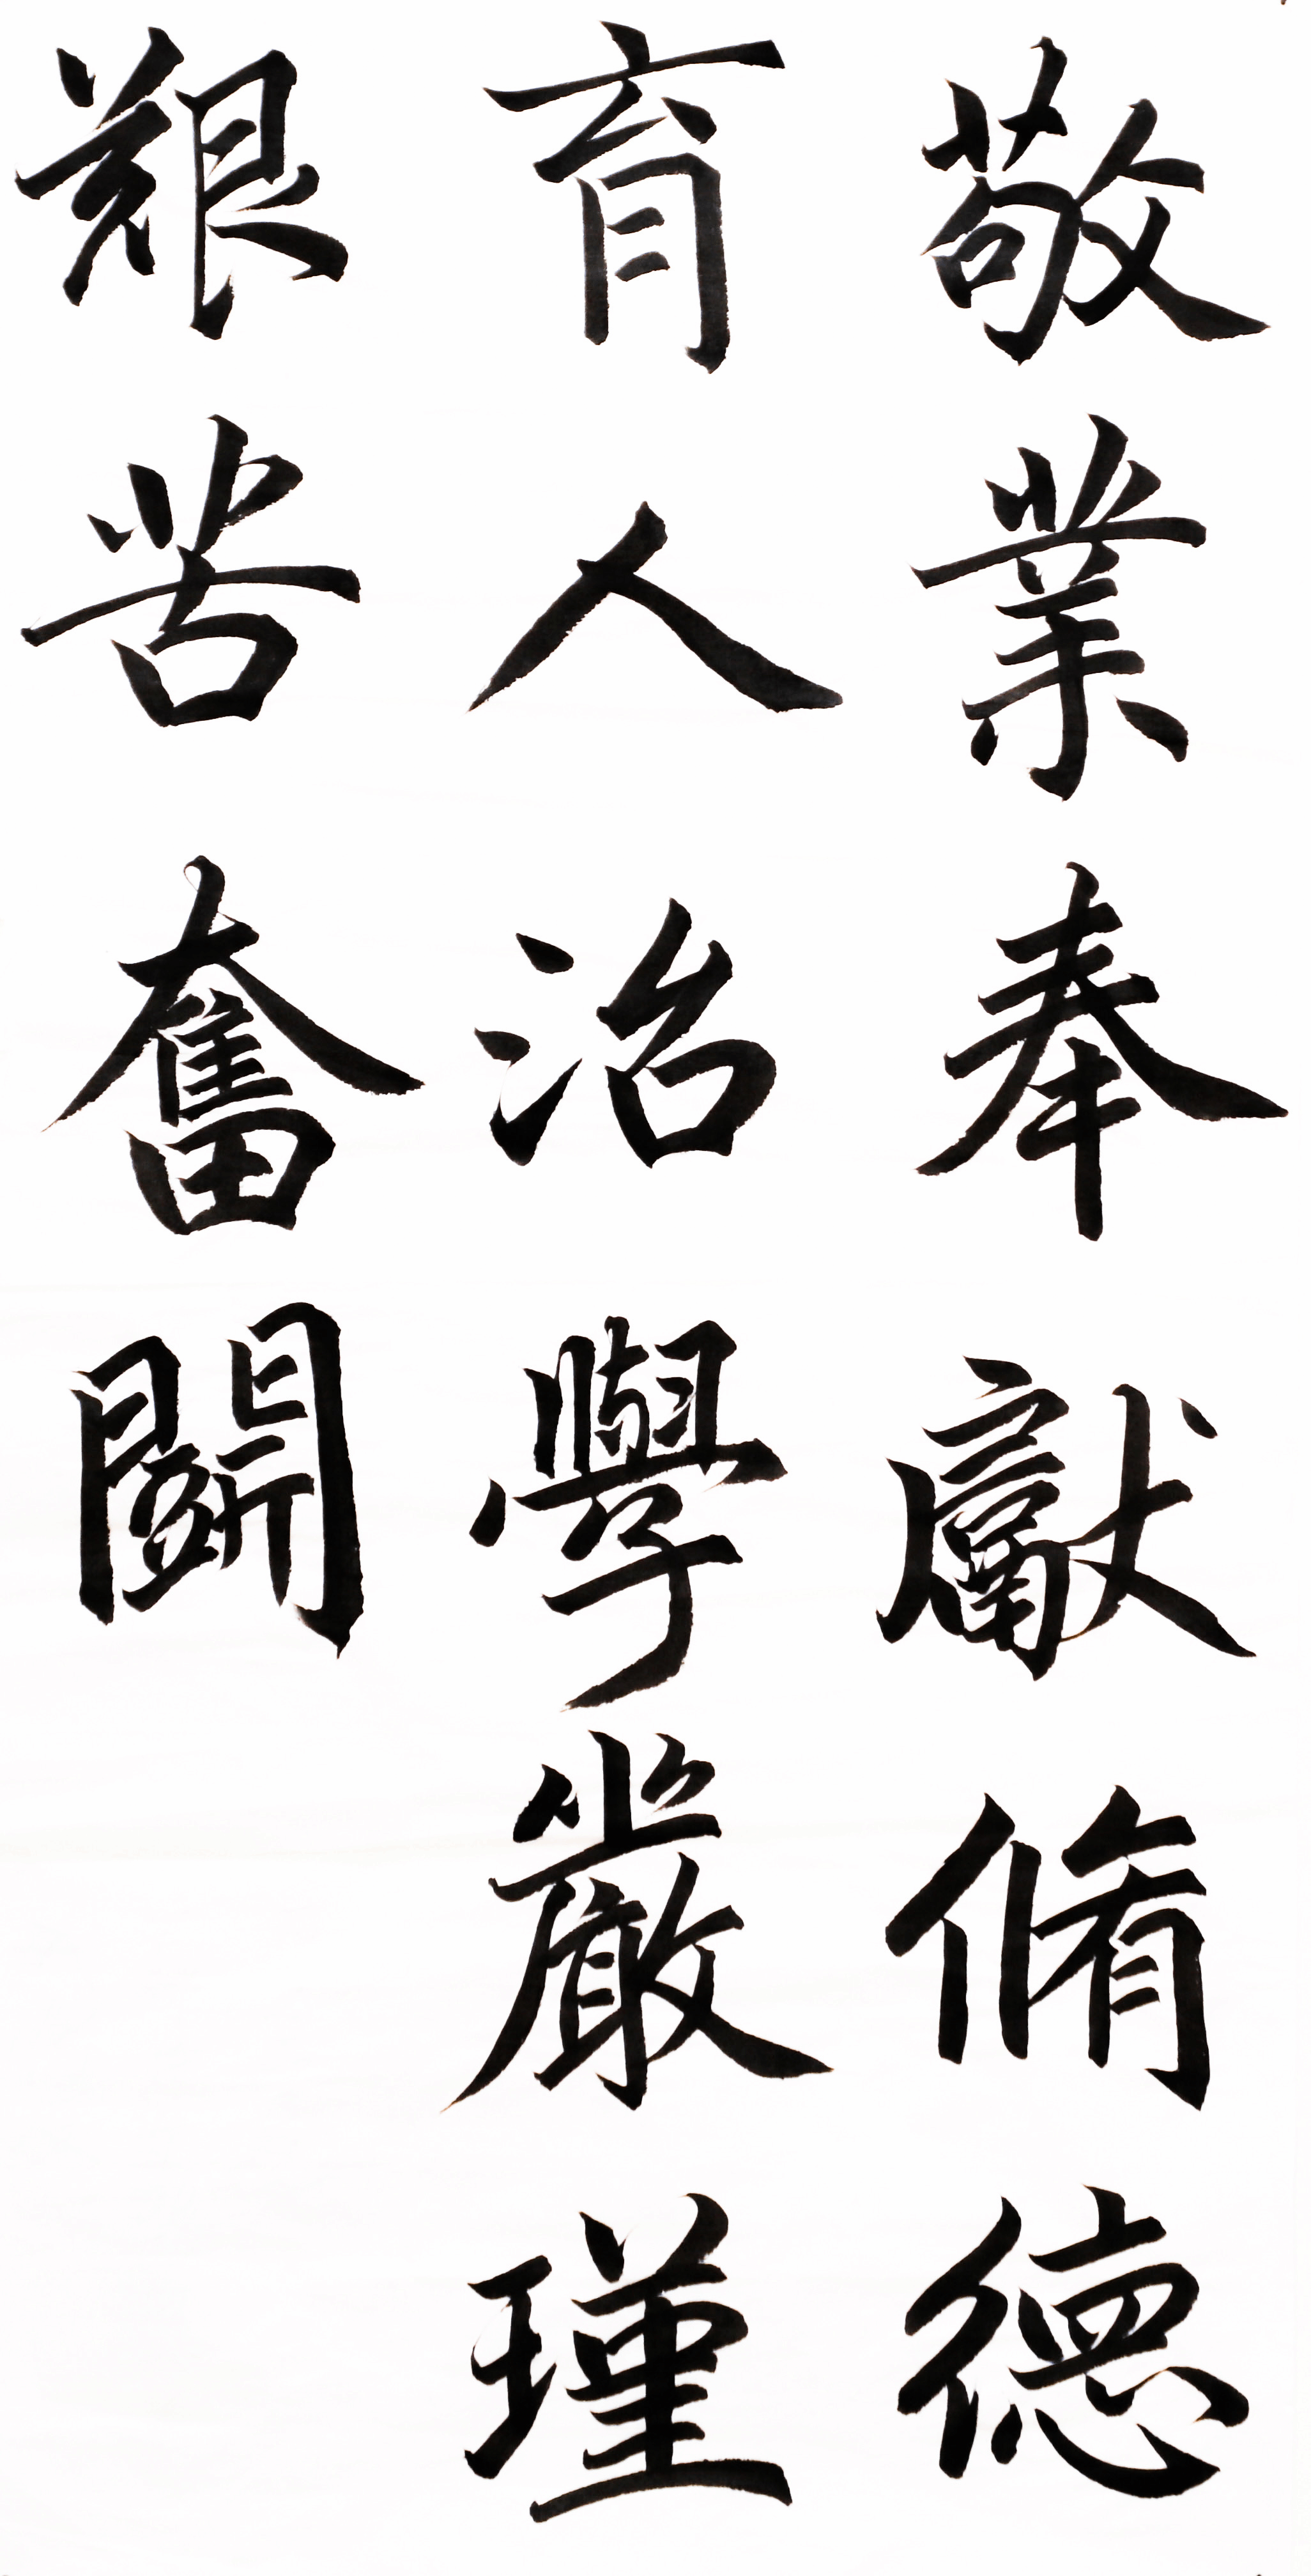 敬業奉獻脩德
育人治學嚴瑾
艱苦奮鬭